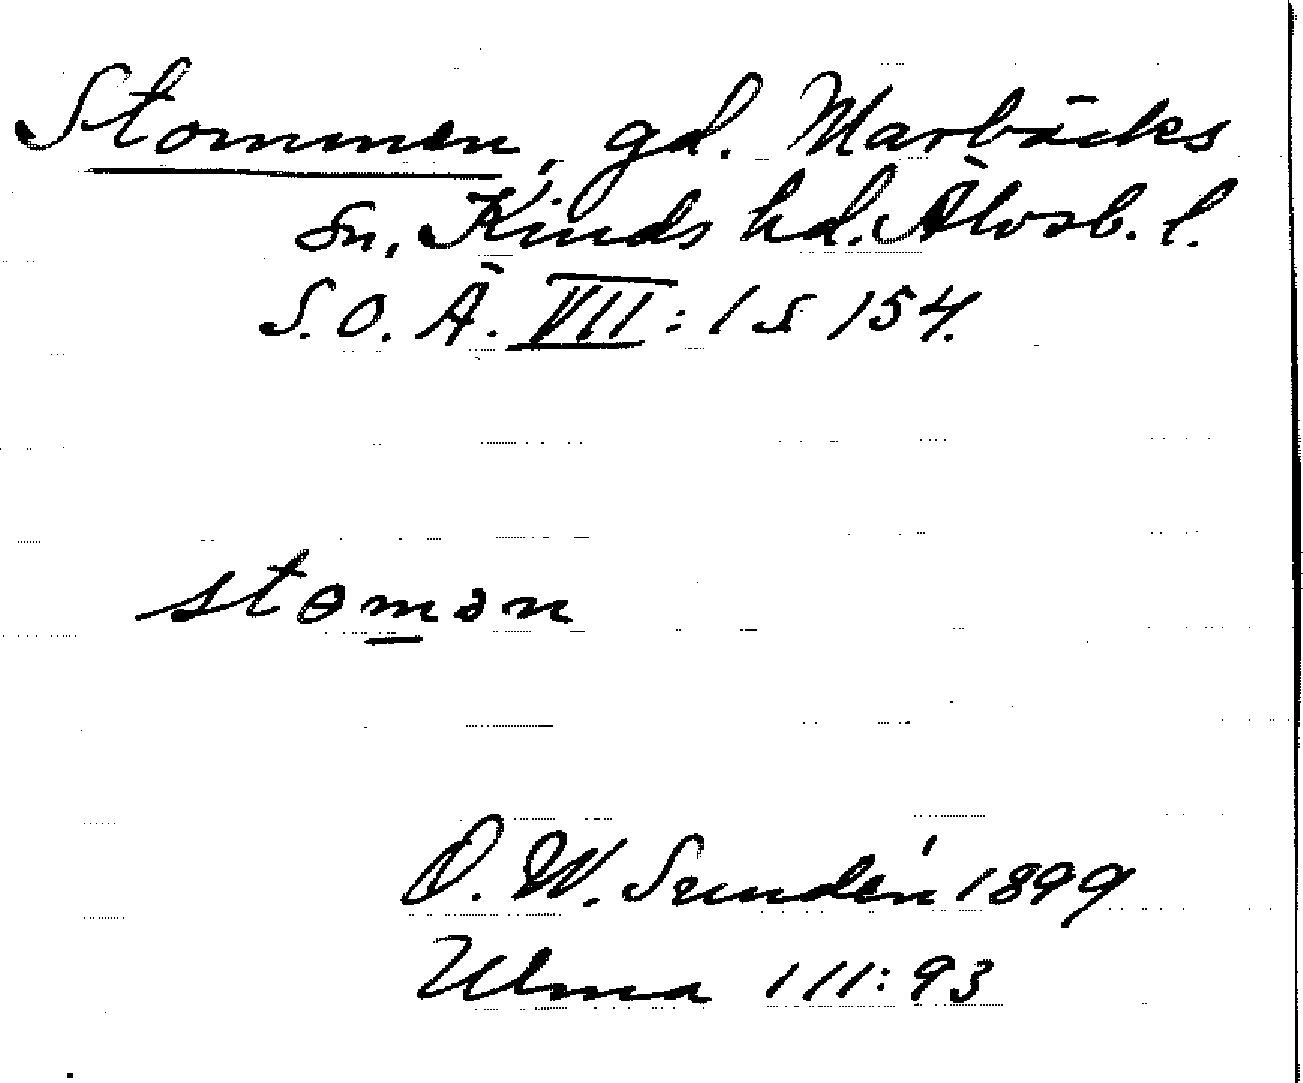 Stommen, gd. Marbäcks
sn, Kinds hd. Älvsb. l.
S. O. Ä. VII: 1 s 154.
stɵmən
O. W. Sundén 1899
Ulma 111:93